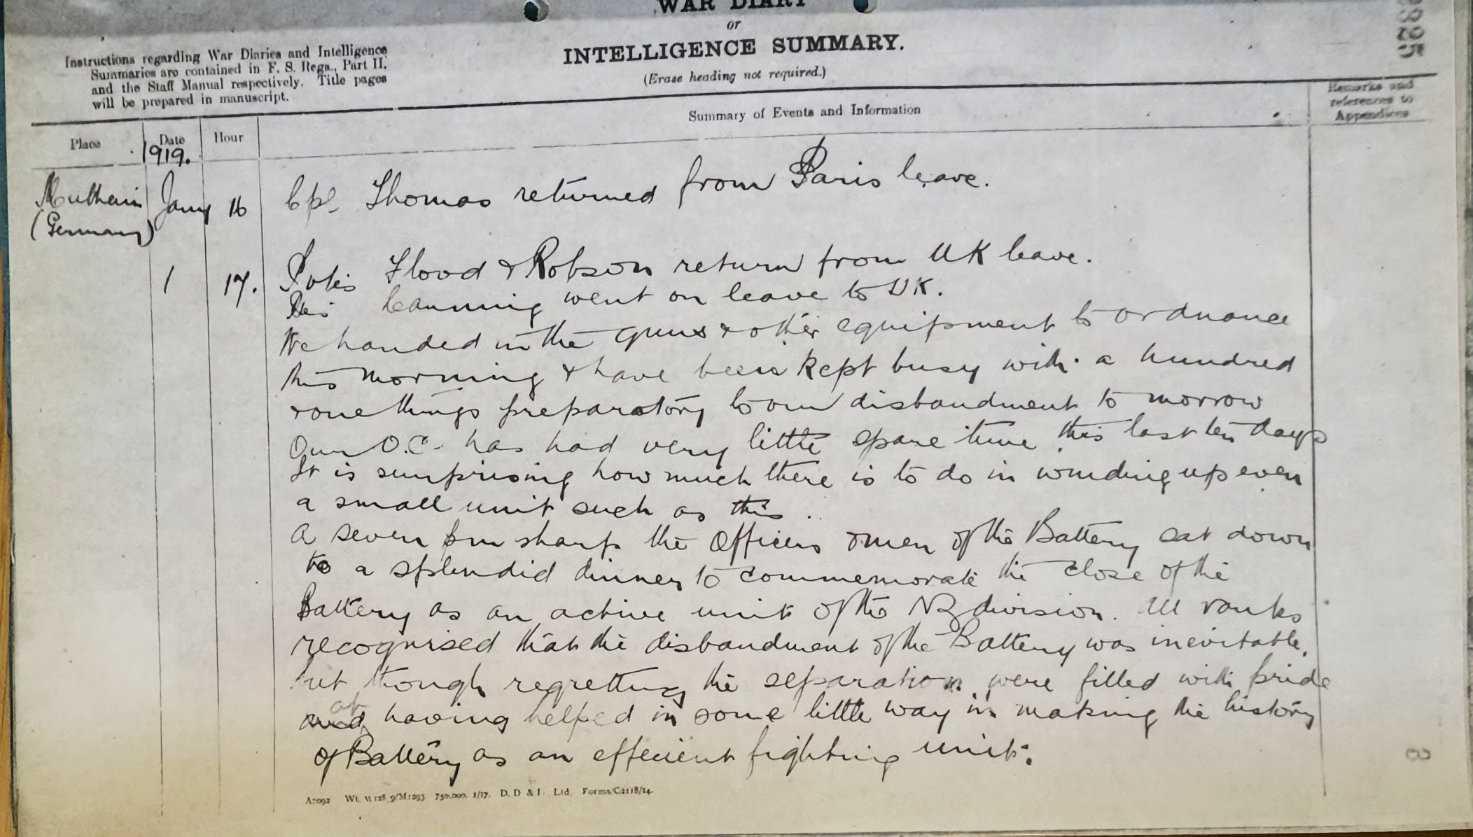 WAR DIARY
or
INTELLIGENCE SUMMARY.
(Erase heading not required.)
Instructions regarding War Diaries and Intelligence
Summaries are contained in F. S. Regs., Part II.
and the Staff Manual respectively. Title pages
will be prepared in manuscript.
Place
Date
Hour
Summary of Events and Information
Remarks and
references to
Appendices
1919.
Mulheim Jany 16 Cpl Thomas returned from Paris leave.
(Germany)
1 17. Flood & Robson return from UK leave.
Canning went on leave to UK.
We handed in the guns & other equipment to ordnance
this morning & have been kept busy with a hundred
& one things preparatory to our disbandment to morrow
Our O.C. has had very little spare time this last ten days
It is surprising how much there is to do in winding up even
a small unit such as this.
A seven pm sharp the Officers & men of the Battery sat down
to a splendid dinner to commemorate the close of the
Battery as an active unit of the NZ division. All ranks
recognised that the disbandment of the Battery was inevitable,
but though regretting the separation were filled with pride
at having helped in some little way in making the history
of Battery as an effecient fighting unit.
750,000. 1/17. D. D & L. Ltd. Forms/C2118/14.